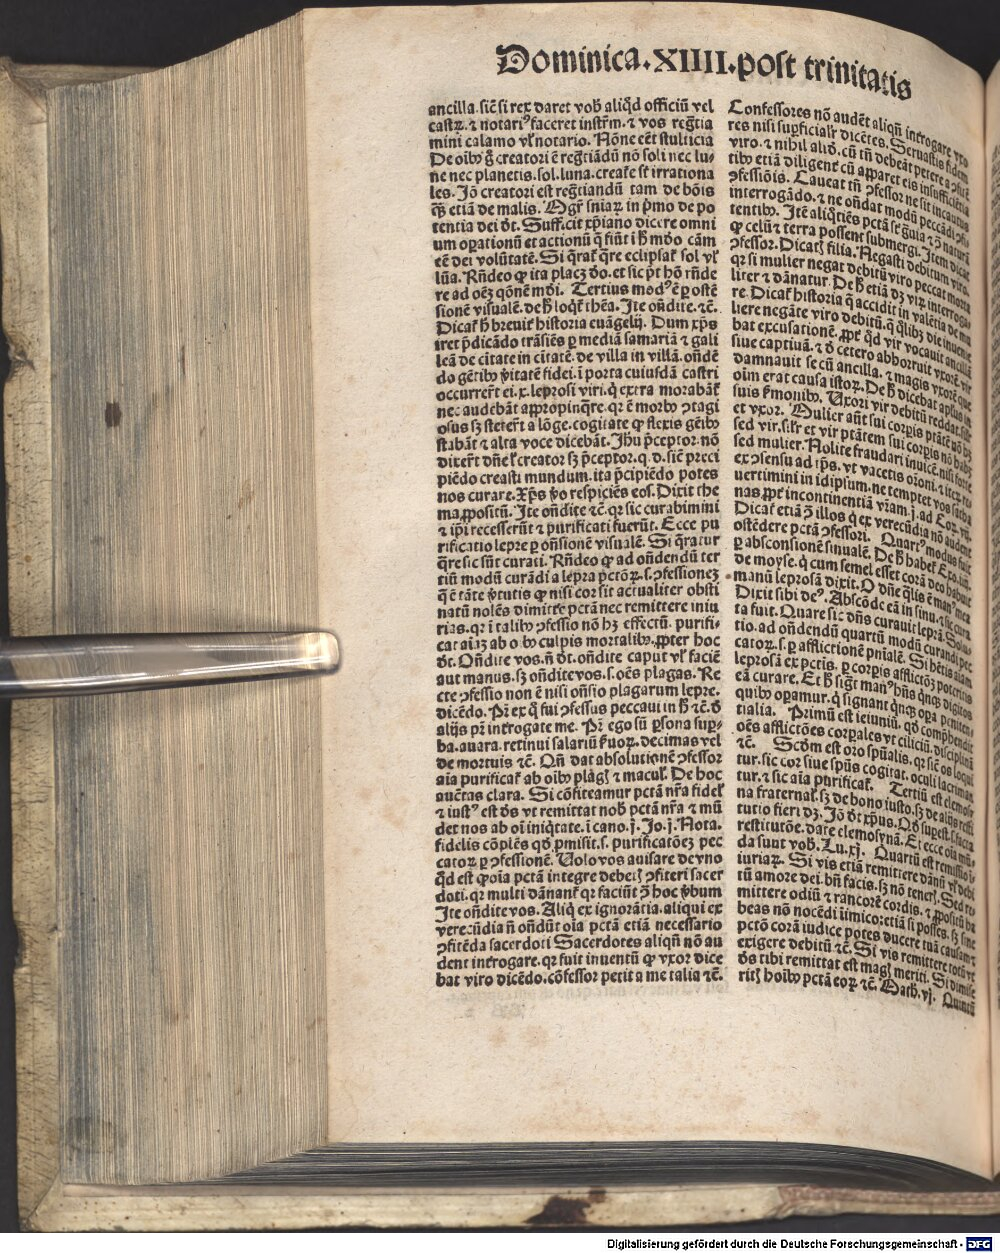 Dominica.XIIII.post trinitatis
ancilla. sic̄ si rex daret vob̄ aliq̄d officiū vel
castꝝ. ⁊ notariꝰ faceret instrm̄. ⁊ vos reg̃tia
mini calamo vl̓ notario. Nōne eēt stulticia
De oibꝰ g̊ creatori ē reg̃tiādū nō soli nec lu⸗
ne nec planetis. sol. luna. creat̓e st̄ irrationa
les. Iō creatori est reg̃tiandū tam de bōis
q̄ꝫ etiā de malis. Mgr̄ sniaꝝ in p̓mo de po
tentia dei dt̄. Sufficit xp̓iano dicere omni
um oꝑationū et actionū q̄ fiūt ī h̄ mdo cām
eē dei volūtatē. Si q̄rat̓ q̄re eclipsat̓ sol vl̓
lūa. Rn̄deo ꝙ ita placꝫ do. et sic pt̄ hō rn̄de
re ad oēꝫ qōnē mdi. Tertius modꝰ ē ꝑ ostē
sionē visualē. de h̄ loqt̓ thēa. Ite on̄dite. ⁊c̄.
Dicat̓ h̄ breuit̓ historia euāgelij. Dum xp̄s
iret p̄dicādo trāsiēs ꝑ mediā samariā ⁊ gali
leā de citate in citatē. de villa in villā. on̄dē
do gētibꝰ v̓itatē fidei. ī porta cuiusdā castri
occurrer̄t ei. x. leprosi viri. q̓ extra morabāt̓
nec audebāt appropinq̄re. qr ē morbꝰ ↄtagi
osus sꝫ steter̄t a lōge. cogitate ꝙ flexis gēibꝰ
stabāt ⁊ alta voce dicebāt. Ihū p̄ceptor. nō
dixer̄t dn̄e l̓ creator sꝫ p̄ceptor. q. d. sic̄ preci
piēdo creasti mundum. ita p̄cipiēdo potes
nos curare. Xp̄s v̓o respiciēs eos. Dixit the
ma ꝓpositū. Ite on̄dite ⁊c̄. qr sic curabimini
⁊ ip̄i recesserūt ⁊ purificati fuerūt. Ecce pu
rificatio lepre ꝑ on̄sionē visualē. Si q̄ratur
q̄re sic sūt curati. Rn̄deo ꝙ ad on̄dendū ter
tiū modū curādi a lepra pctōꝝ. s. ↄfessioneꝫ
q̄ ē tāte v̓tutis ꝙ nisi cor sit actualiter obsti
natū nolēs dimitt̓e pctā nec remittere iniu
rias. qr ī talibꝰ ↄfessio nō hꝫ effectū. purifi⸗
cat aīaꝫ ab oībꝰ culpis mortalibꝰ. ꝓpter hoc
dt̄. On̄dite vos. n̄ dt̄. on̄dite caput vl̓ faciē
aut manus. sꝫ on̄dite vos. s. oēs plagas. Re
cte ↄfessio non ē nisi on̄sio plagarum lepre.
dicēdo. Pr̄ ex q̊ fui ↄfessus peccaui in h̄ ⁊c̄. d̓
alijs pr̄ int̓rogate me. Pr̄ ego sū ꝑsona suꝑ⸗
ba. auara. retinui salariū ẜuoꝝ. decimas vel
de mortuis ⁊c̄. Qn̄ dat absolutionē ↄfessor
aīa purificat̓ ab oībꝰ plagꝭ ⁊ macul̓. De hoc
auctas clara. Si cōfiteamur pctā nr̄a fidel̓
⁊ iustꝰ est d̓s vt remittat nob̄ pctā nr̄a ⁊ mū
det nos ab oī iniq̄tate. ī cano. j. Jo. j. Nota.
fidelis cōplēs qd̓ ꝓmisit. s. purificatōeꝫ pec
catoꝝ ꝑ ↄfessionē. Uolo vos auisare de vno
Qd̓ est ꝙ oīa pctā integre debetꝭ ↄfiteri sacer
doti. qr multi dānant̓ qr faciūt ↄ̄ hoc v̓bum
Ite on̄dite vos. Aliq̓ ex ignorātia. aliqui ex
verecūdia n̄ on̄dūt oīa pctā etiā necessario
ↄfitēda sacerdoti Sacerdotes aliqn̄ nō au
dent int̓rogare. qr fuit inuentū ꝙ vxor dice
bat viro dicēdo. cōfessor petit a me talia ⁊c̄.
Confessores nō audēt aliqn̄ int̓rogare vxo
res nisi suꝑficialr̄ dicētes. Seruastis fidem
viro. ⁊ nihil aliō. cū tn̄ debeāt petere a ↄfitē
tibꝰ etiā diligent̓ cū apparet eis insufficiētia
ↄfessiōis. Caueat tn̄ ↄfessor ne sit incautus
interrogādo. ⁊ ne on̄dat modū peccādi ↄfi⸗
tentibꝰ. Itē aliqn̄
ꝙ celū ⁊ terra possent submergi. Item dicat
ↄfessor. Dicatꝭ filia. Negasti debitum viro.
qr si mulier negat debitū viro peccat morta
liter ⁊ dānatur. De h̄ etiā dꝫ vir interroga⸗
re. Dicat̓ historia q̄ accidit in valētia de mu
liere negāte viro debitū. q̄ qlibꝫ die inuenie
bat excusationē. ꝓpt̓ qd̓ vir vocauit ancillā
siue captiuā. ⁊ d̓ cetero abhorruit vxorē vir
damnauit se cū ancilla. ⁊ magis vxorē que
oīm erat causa istoꝝ. De h̄ dicebat aplus in
suis ẜmonibꝰ. Uxori vir debitū reddat. silr̄
et vxor. Mulier aūt sui corꝑis ptātē nō hꝫ
sed vir. silr̄ et vir ptātem sui corꝑis nō habꝫ
sed mulier. Nolite fraudari inuicē. nisi forte
ex ↄsensu ad tp̄s. vt vacetis orōni. ⁊ iteꝝ re
uertimini in idipsum. ne temptet vos satha
nas ꝓpt̓ incontinentiā vr̄am. j. ad Coꝝ. vij.
Dicat̓ etiā ↄ̄ illos q̓ ex verecūdia nō audent
ostēdere pctā ↄfessori. Quartꝰ modus fuit
ꝑ absconsionē sinualē. De h̄ habet̓ Exo. iiij.
de moyse. q̓ cum semel esset corā deo habuit
manū leprosā dixit. O dn̄e q̄lis ē manꝰ mea
Dixit sibi deꝰ. Abscōde eā in sinu. ⁊ sic cura
ta fuit. Quare sic dn̄s curauit leprā. Solu⸗
tio. ad on̄dendū quartū modū curandi pec
catoꝝ. s. ꝑ afflictionē pn̄ialē. Si hētis aīam
leprosā ex pctis. ꝑ corꝑis afflictōꝫ poteritis
eā curare. Et h̄ sigt̄ manꝰ hn̄s qnqꝫ digitos
quibꝰ oꝑamur. q̓ signant qnqꝫ oꝑa peniten⸗
tialia. Primū est ieiuniū. qd̓ comp̄hendit
oēs afflictōes corꝑales vt ciliciū. disciplinā
⁊c̄. Scd̓m est oro spūalis. qr sic̄ os loqui
tur. sic cor siue spūs cogitat. oculi lacriman
tur. ⁊ sic aīa purificat̓. Tertiū est elemosi⸗
na fraternal̓. sꝫ de bono iusto. sꝫ de alijs resti
tutio fieri dꝫ. Iō dt̄ xp̄us. Qd̓ suꝑest. s. facta
restitutōe. date elemosynā. Et ecce oīa mū⸗
da sunt vob̄. Lu. xj. Quartū est remissio in
iuriaꝝ. Si vis etiā remittere dānū vl̓ debi
tū amore dei. bn̄ facis. sꝫ nō tenerꝭ. Sed re
mittere odiū ⁊ rancorē cordis. ⁊ ꝓpositū ha
beas nō nocēdi īimico: etiā si posses. sꝫ sine
pctō corā iudice potes ducere tuā causam ⁊
exigere debitū ⁊c̄. Si vis remittere totū vt
d̓s tibi remittat est magꝭ meriti. Si dimise
ritꝭ hoībꝰ pctā eoꝝ ⁊c̄. Math. vj. Quintū
Digitalisierung gefördert durch die Deutsche Forschungsgemeinschaft - DFG